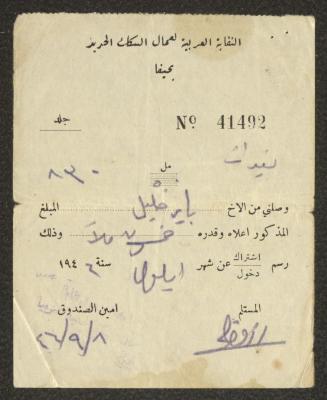 النقابة العربية لعمال السكك الحديد
بحيفا
جلد
Nº 41492
مل
وصلني من الاخ خليل المبلغ
المذكور اعلاه وقدره وذلك
رسم اشتراك دخول عن شهر ايلول سنة ١٩٤٦
المستلم امين الصندوق
٤٦/٩/٨